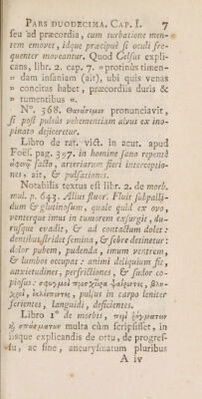 PARS DUODECIMA. CAP. I. 7
seu ad præcordia, cum turbatione men-
tem emovet, idque præcipuè si oculi fre-
quenter moveantur. Quod Celsus expli-
cans, libr. 2. cap. 7. » protinùs timen-
» dam insaniam (ait), ubi quis venas
» concitas habet, præcordiis duris &
» tumentibus ».
N°. 368. pronunciavit,
si post pulsûs vehementiam alvus ex ino-
pinato dejiceretur.
Libro de rat. vict. in acut. apud
Foës. pag. 397. in homine sano repentè
arteriarum fieri interceptio-
nes, ait, & pulsationes.
Notabilis textus est libr. 2. de morb.
mul. p. 643. Alius fluor. Fluit subpalli-
dum & glutinosum, quale quid ex ovo,
venterque imus in tumorem exsurgit, du-
rusque evadit, & ad contactum dolet:
dentibus stridet femina, & febre detinetur:
dolor pubem, pudenda, imum ventrem,
& lumbos occupat: animi deliquium fit,
anxietudines, perfrictiones, & sudor co-
piosus: σφυγμοὶ
pulsus in carpo leniter
ferientes, languidi, deficientes.
Libro 1° de morbis,
multa cùm scripsisset, in
iisque explicandis de ortu, de progres-
su, ac fine, aneurysmatum pluribus
A iv